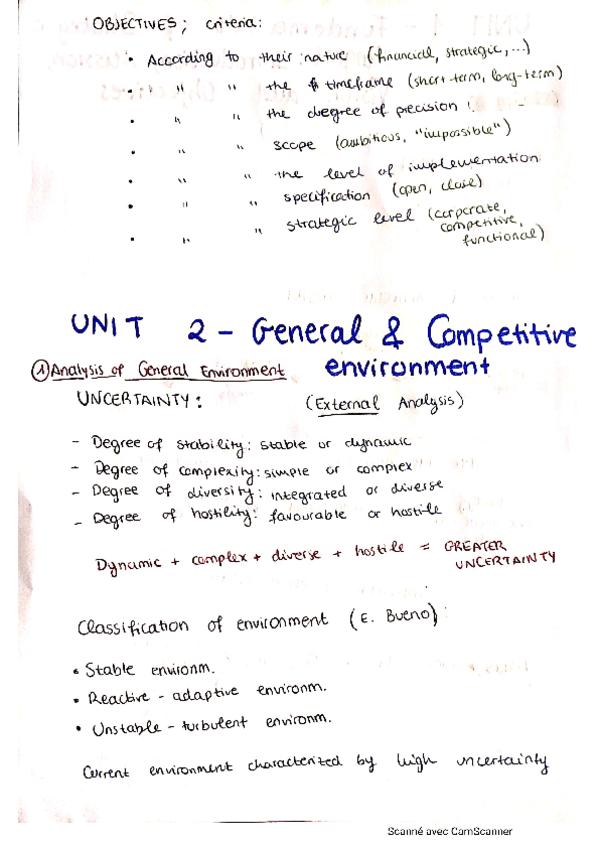 OBJECTIVES; criteria:
• According to their nature (financial, strategic,...)
• " " the timeframe (short-term, long-term)
• " " the degree of precision
• " " scope (ambitious, "impossible")
• " " the level of implementation
• " " specification (open, close)
• " " strategic level (corporate, competitive, functional)
UNIT 2 - General & Competitive
environment
① Analysis of General Environment
UNCERTAINTY: (External Analysis)
- Degree of stability: stable or dynamic
- Degree of complexity: simple or complex
- Degree of diversity: integrated or diverse
- Degree of hostility: favourable or hostile
Dynamic + complex + diverse + hostile = GREATER
UNCERTAINTY
Classification of environment (E. Bueno)
• Stable environm.
• Reactive - adaptive environm.
• Unstable - turbulent environm.
Current environment characterized by high uncertainty
Scanné avec CamScanner